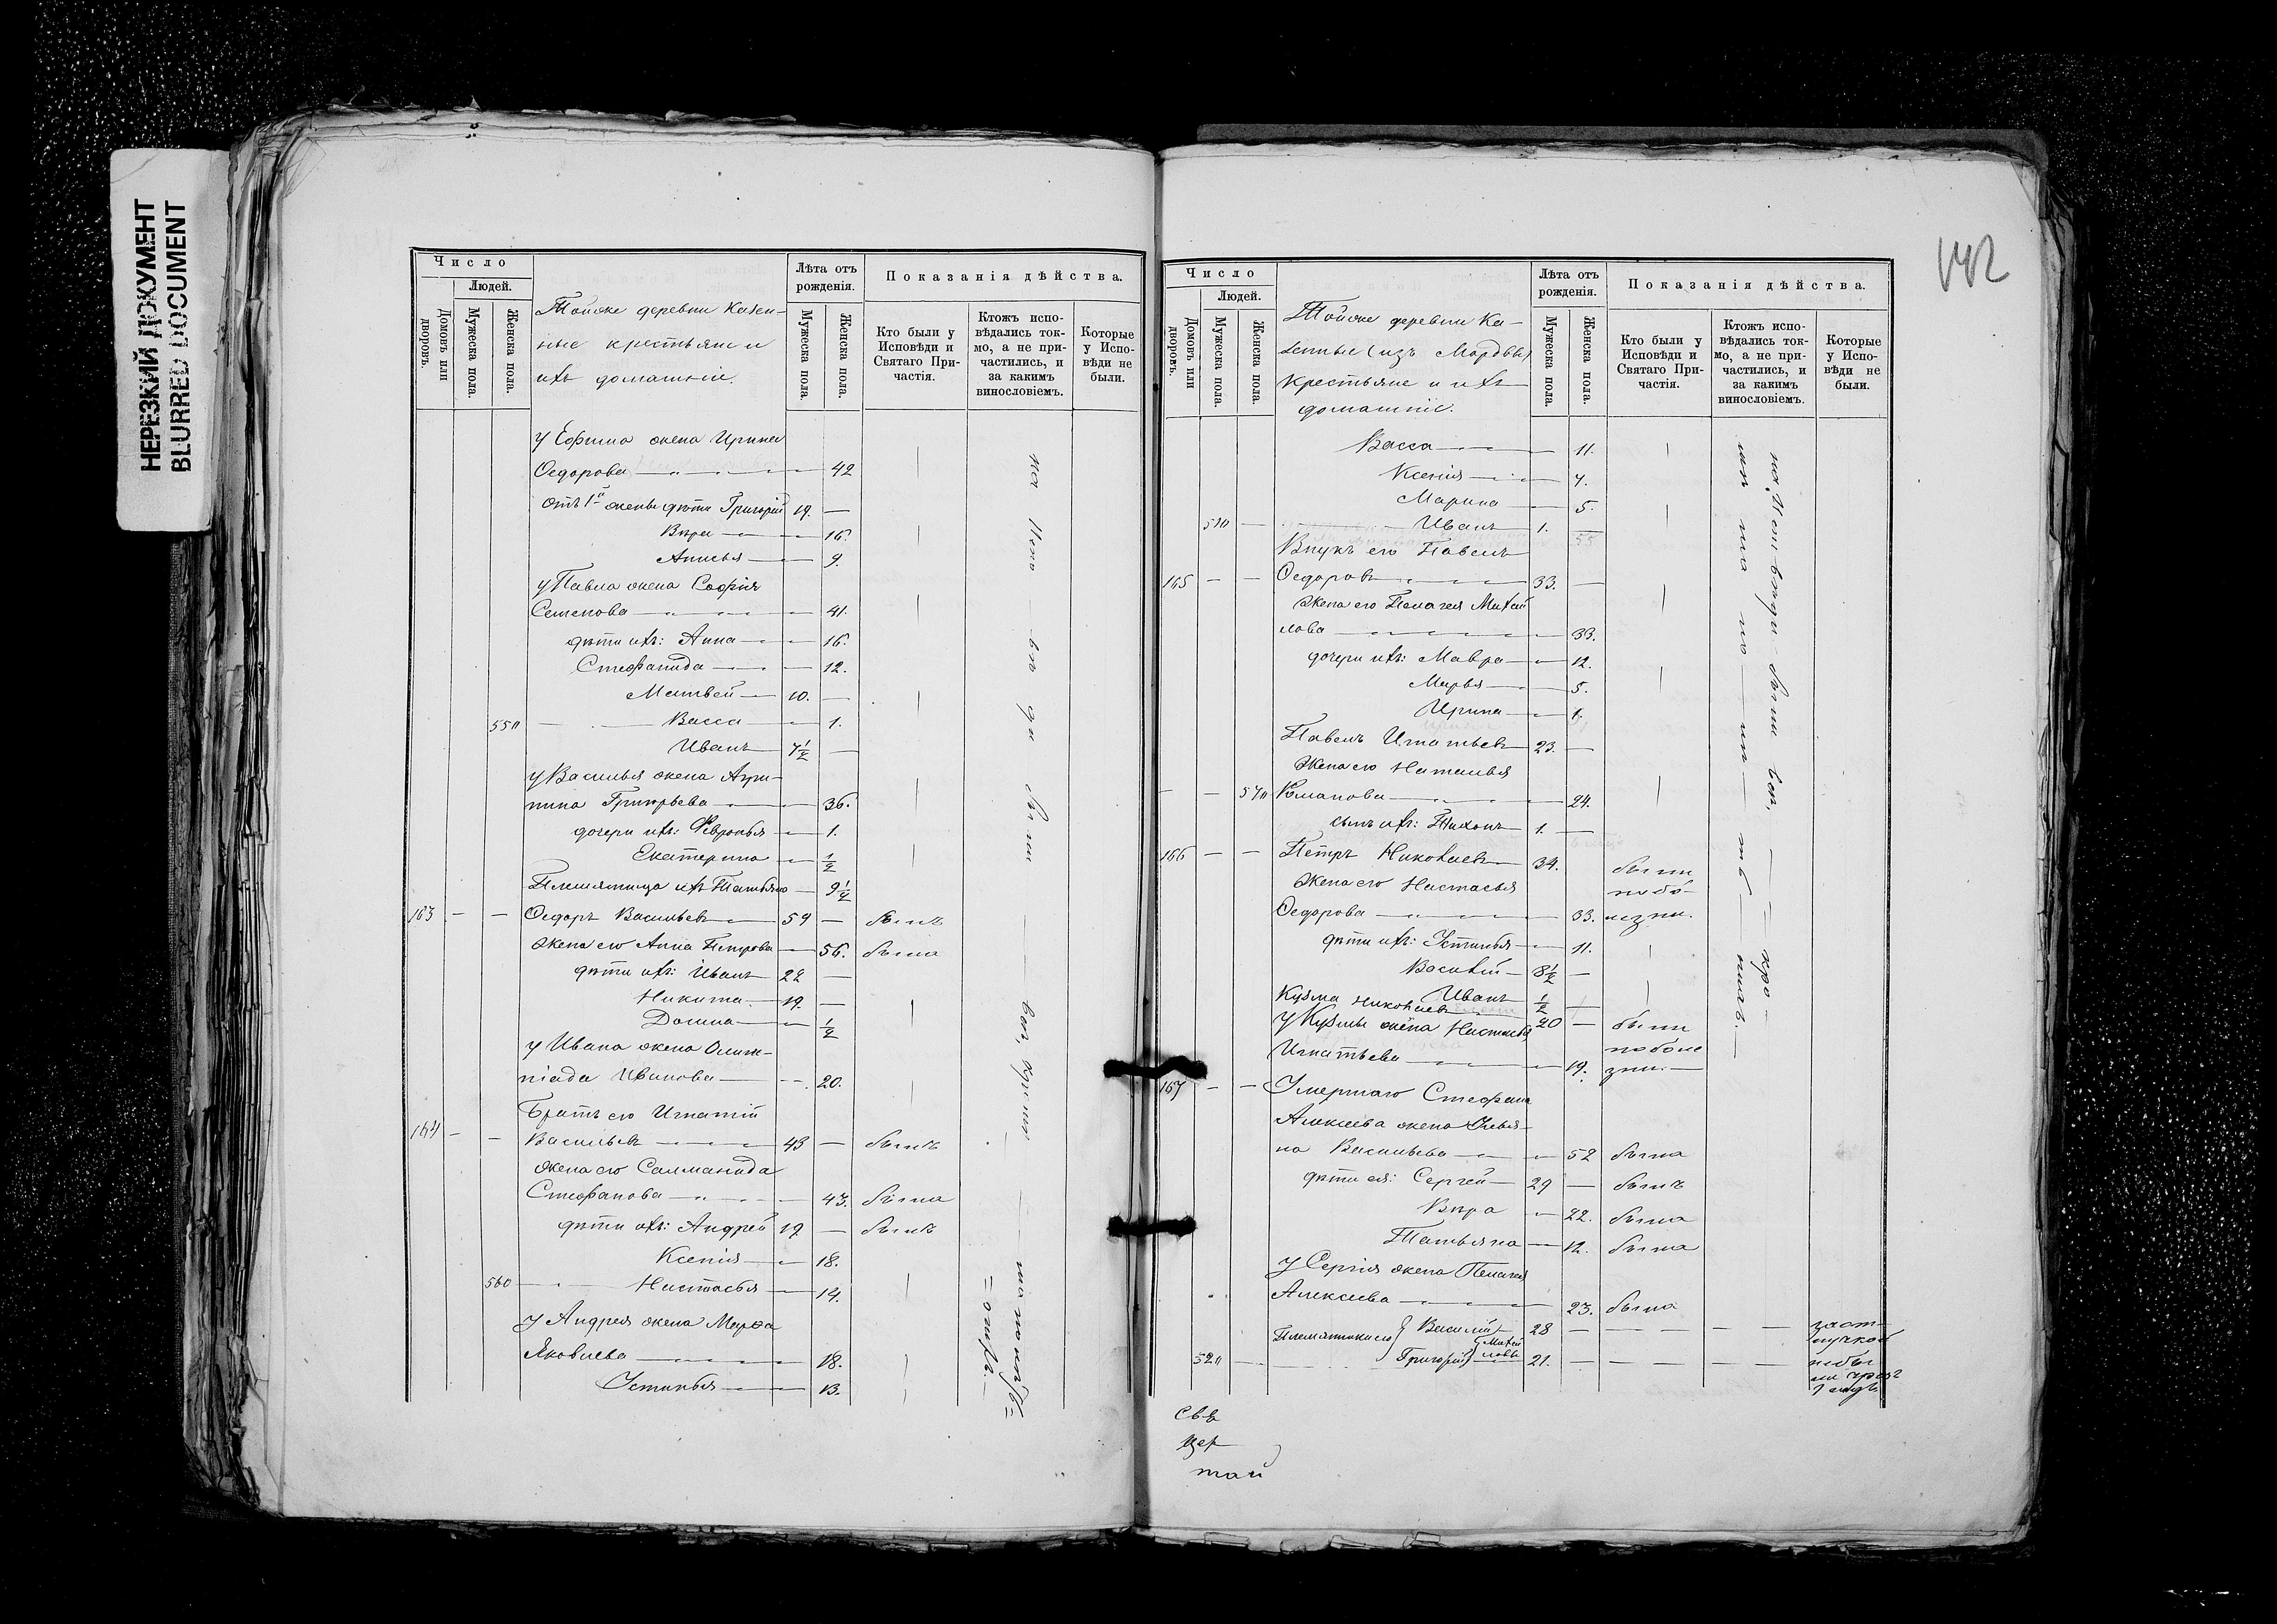 НЕРЕЗКИЙ ДОКУМЕНТ
BLURRED DOCUMENT
Число
Людей.
Домовъ или дворовъ.
Мужеска пола.
Женска пола.
Тойже деревни Казен-
ные крестьяне и
ихъ домашніе.
Лѣта отъ
рожденія.
Мужеска пола.
Женска пола.
Показанія дѣйства.
Кто были у
Исповѣди и
Святаго При-
частія.
Ктожъ испо-
вѣдались ток-
мо, а не при-
частились, и
за какимъ
винословіемъ.
Которые
у Испо-
вѣди не
были.
у Ефима жена Ирина
Ѳедорова 42
отъ 1й жены дѣти Григорій 19.
Вѣра 16.
Анисья 9.
у Павла жена Софія
Семенова 41.
дѣти ихъ: Анна 16.
Стефанида 12.
Матвей 10.
550 Васса 1.
Иванъ 7½
у Василья жена Агри-
пина Григорьева 36.
дочери ихъ: Февронья 1.
Екатерина ½
Племянница ихъ Татьяна 9½
163 Ѳедоръ Васильевъ 59 былъ
жена его Анна Петрова 56. была
дѣти ихъ: Иванъ 22
Никита 19.
Домна ½
у Ивана жена Олим-
піада Иванова 20.
Братъ его Игнатій
164 Васильевъ 43 былъ
жена его Саломанида
Стефанова 43. была
дѣти ихъ: Андрей 19 былъ
Ксенія 18.
560 Настасья 14.
у Андрея жена Марѳа
Яковлева 18.
Устинья 13.
142
Число
Людей.
Домовъ или дворовъ.
Мужеска пола.
Женска пола.
Тойже деревни Ка-
зенные (изъ Мордвы)
крестьяне и ихъ
домашніе.
Лѣта отъ
рожденія.
Мужеска пола.
Женска пола.
Показанія дѣйства.
Кто были у
Исповѣди и
Святаго При-
частія.
Ктожъ испо-
вѣдались ток-
мо, а не при-
частились, и
за какимъ
винословіемъ.
Которые
у Испо-
вѣди не
были.
Васса 11.
Ксенія 7.
Марина 5.
510 Иванъ 1.
Внукъ его Павелъ
165 Ѳедоровъ 33.
жена его Пелагея Михай
лова 33.
дочери ихъ: Мавра 12.
Марья 5.
Ирина 1.
Павелъ Игнатьевъ 23.
жена его Наталья
570 Романова 24.
сынъ ихъ: Тихонъ 1.
166 Петръ Николаевъ 34. были
жена его Настасья по бо-
Ѳедорова 33. лезни.
дѣти ихъ: Устинья 11.
Василій 8½
Иванъ ½
Кузма Николаевъ 20 были
у Кузмы жена Настасья по боле
Игнатьева 19. зни.
167 Умершаго Стефана
Алексѣева жена Улья-
на Васильева 52 была
дѣти ея: Сергей 29 былъ
Вѣра 22. была
Татьяна 12. была
у Сергія жена Пелагея
Алексѣева 23. была
Племянники его Василій 28
Михайловы
520 Григорій 21.
Свя
щер
тай